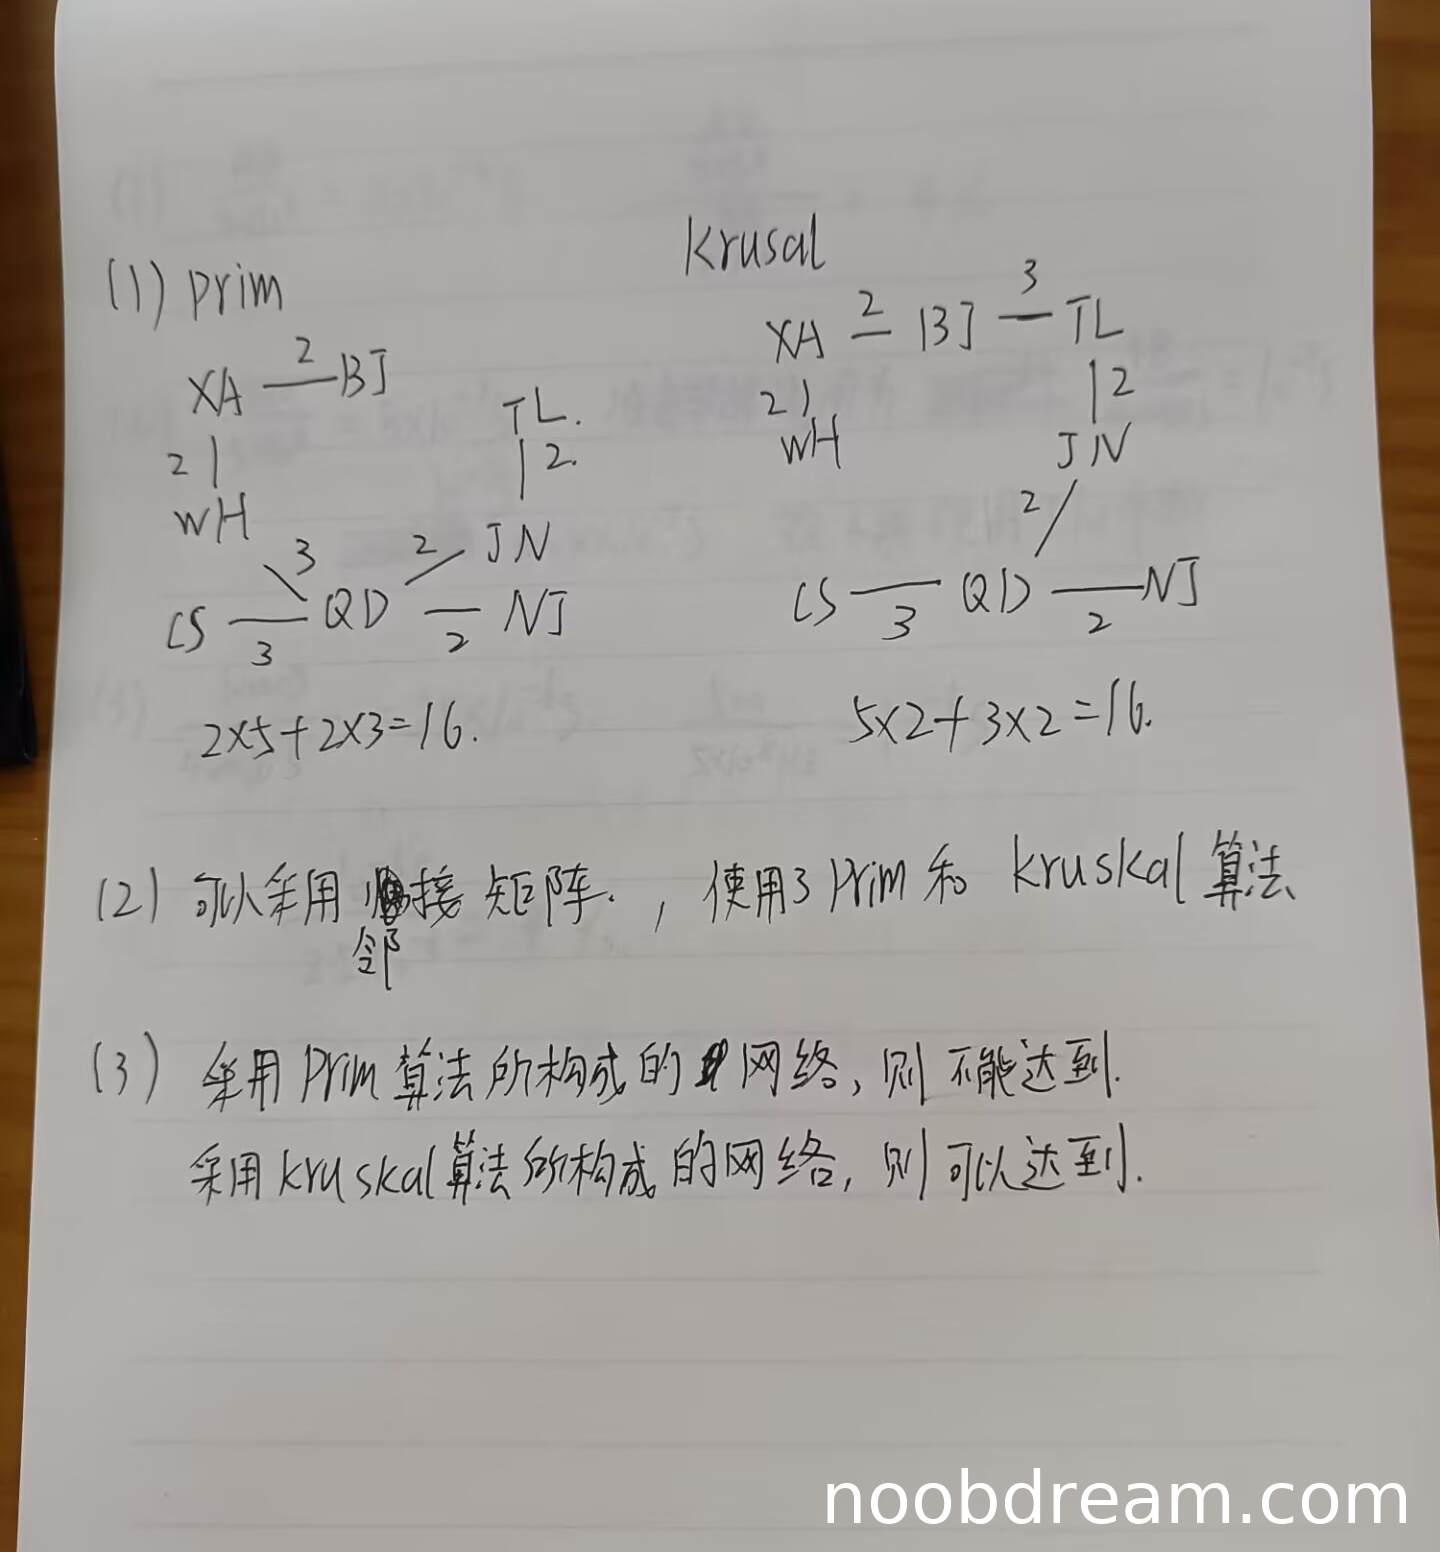 (1) prim
XA 2 BJ
TL.
2
2.
WH
3
2
JN
CS
3
QD
2
NJ
2×5+2×3=16.
Krusal
XA 2 BJ 3 TL
2
2
WH
JN
2
CS
3
QD
2
NJ
5×2+3×2=16.
(2) 可以采用邻接矩阵.,使用了Prim和kruskal算法
(3) 采用Prim算法所构成的网络,则不能达到.
采用kruskal算法所构成的网络,则可以达到.
noobdream.com